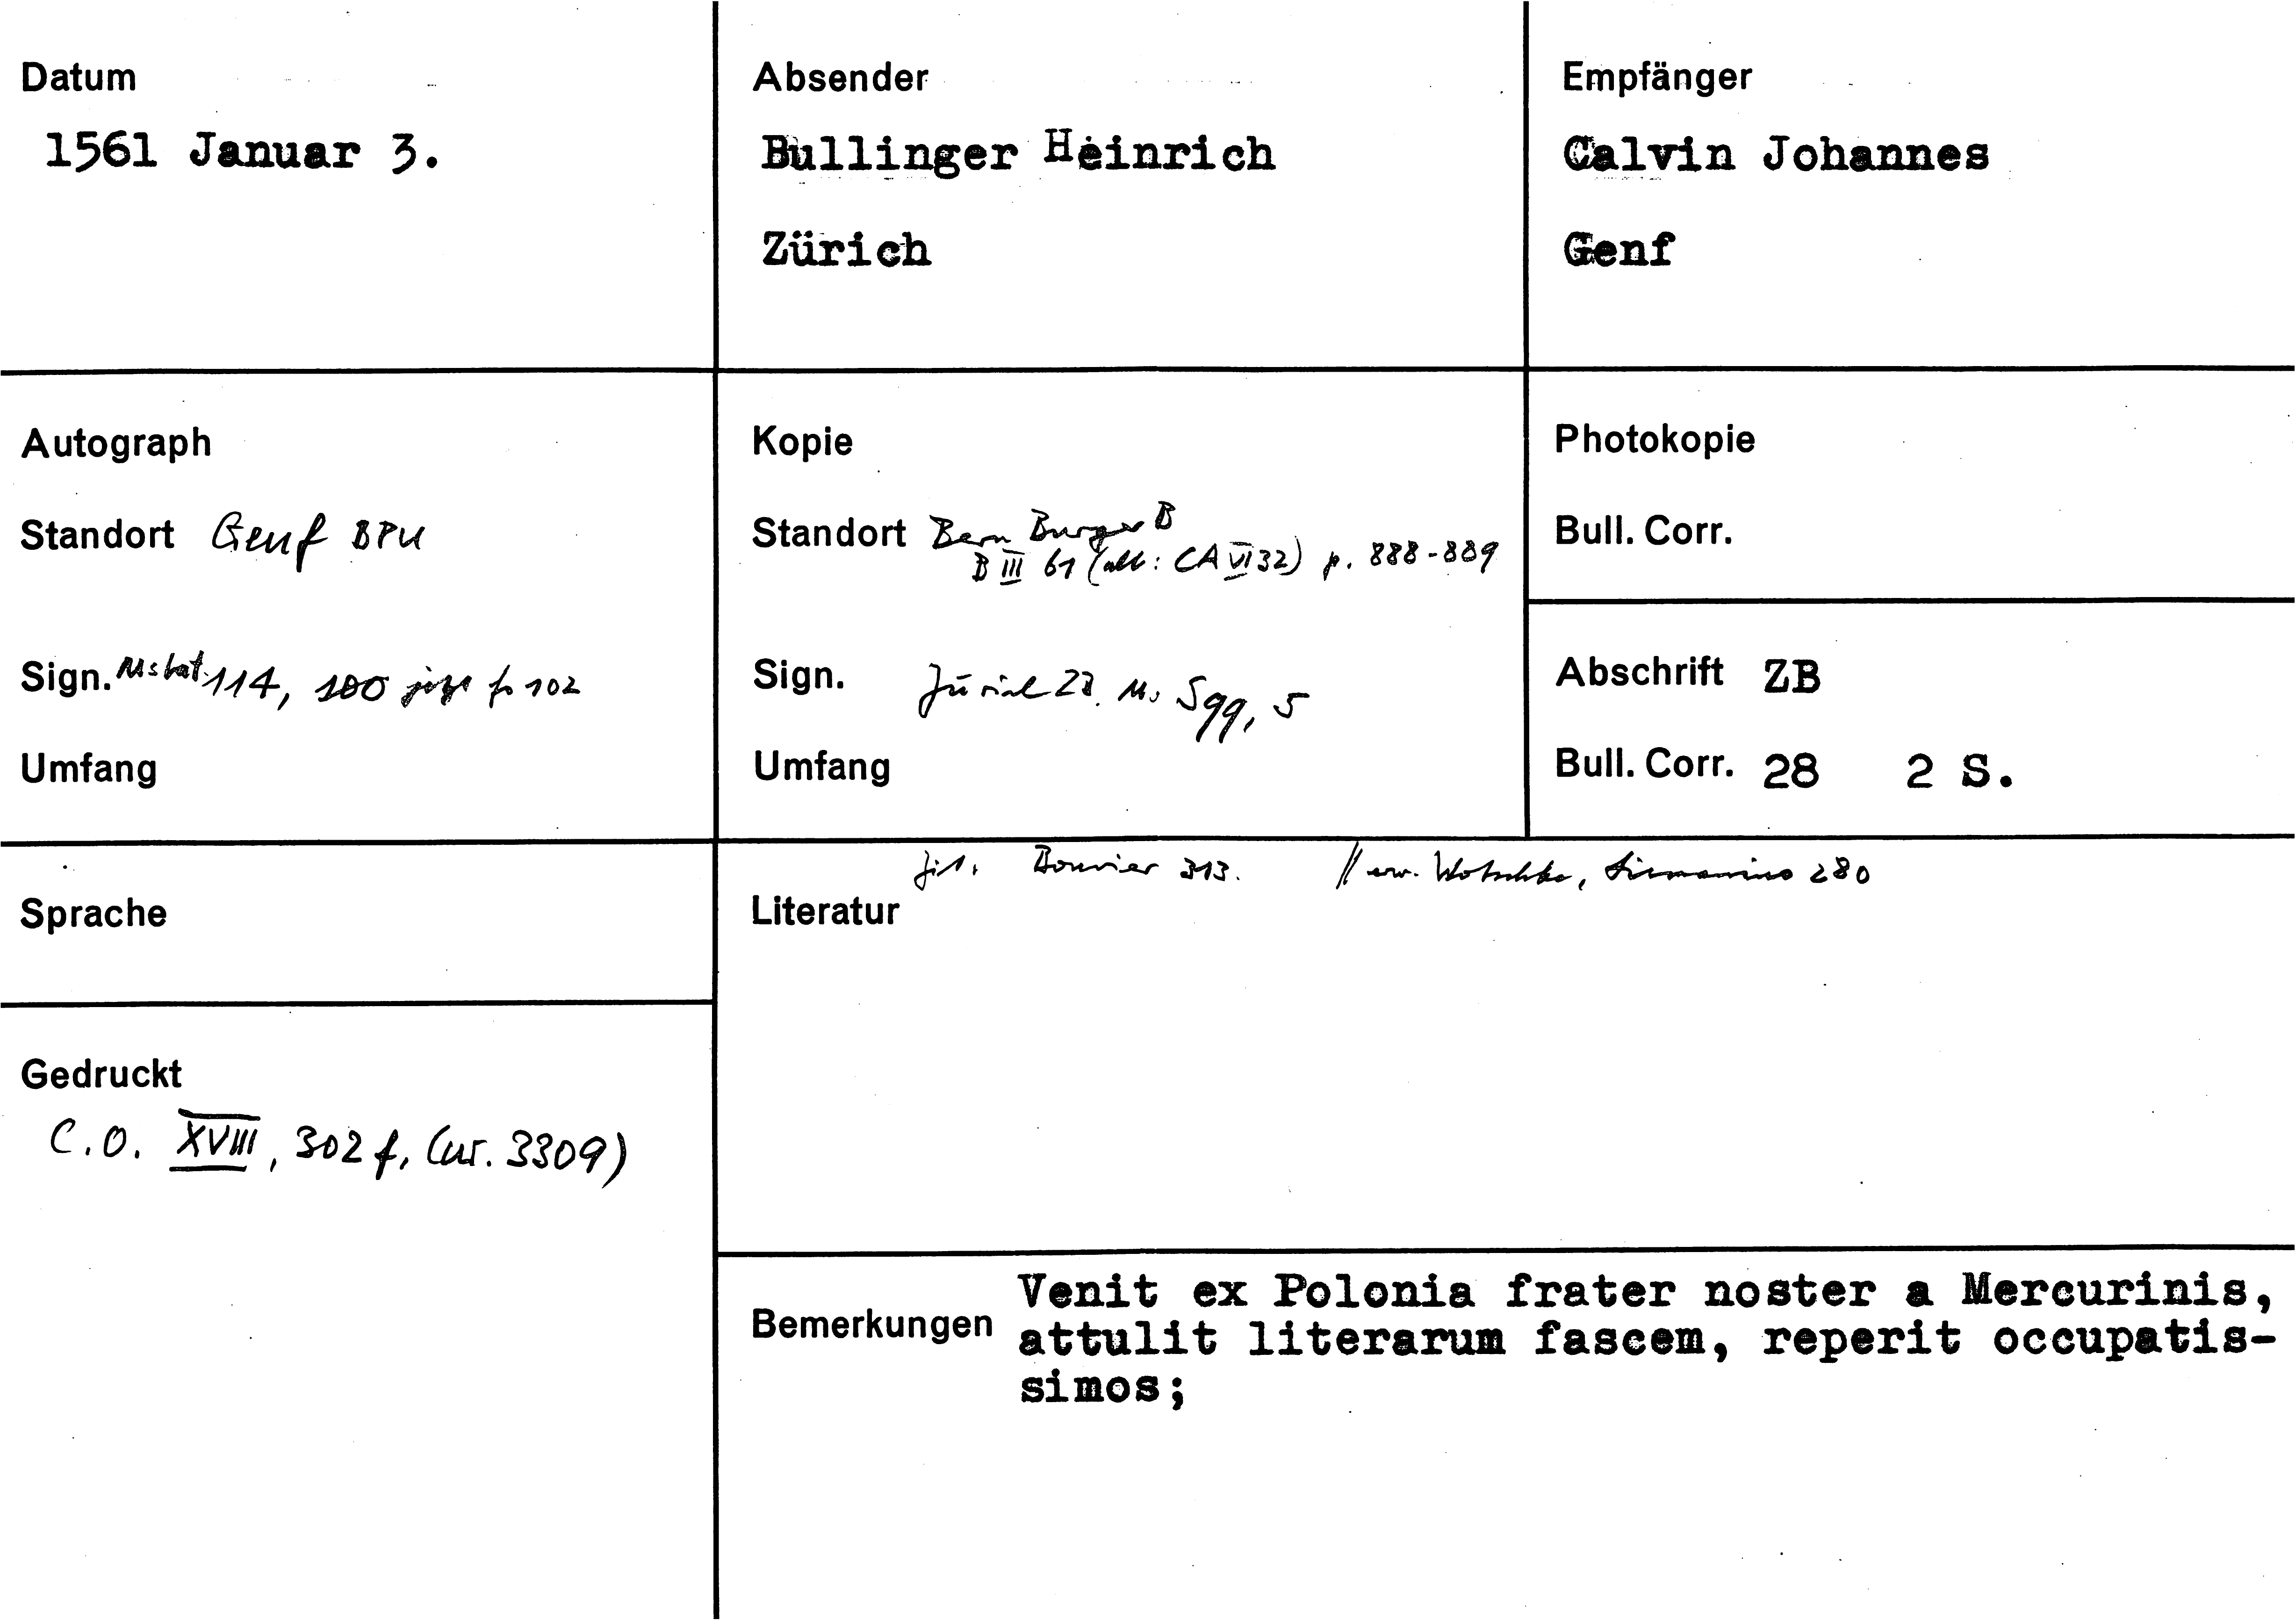 Datum
1561 Januar 3.
Absender
Bullinger Heinrich
Zürich
Empfänger
Calvin Johannes
Genf
Autograph
Standort Genf BPU
Sign. Ms lat. 114, 100 jetzt f. 102
Umfang
Kopie
Standort Bern Burger B
B III 61 (alt: CA VI 32) p. 888-889
Sign. Zürich ZB. Ms S 99, 5
Umfang
Photokopie
Bull. Corr.
Abschrift ZB
Bull. Corr. 28 2 S.
Sprache
Gedruckt
C.O. XVIII, 302 f, (nr. 3309)
zit. Bouvier 313. // erw. Wotschke, Lismanino 280
Literatur
Bemerkungen
Venit ex Polonia frater noster a Mercurinis,
attulit literarum fascem, reperit occupatis-
simos;